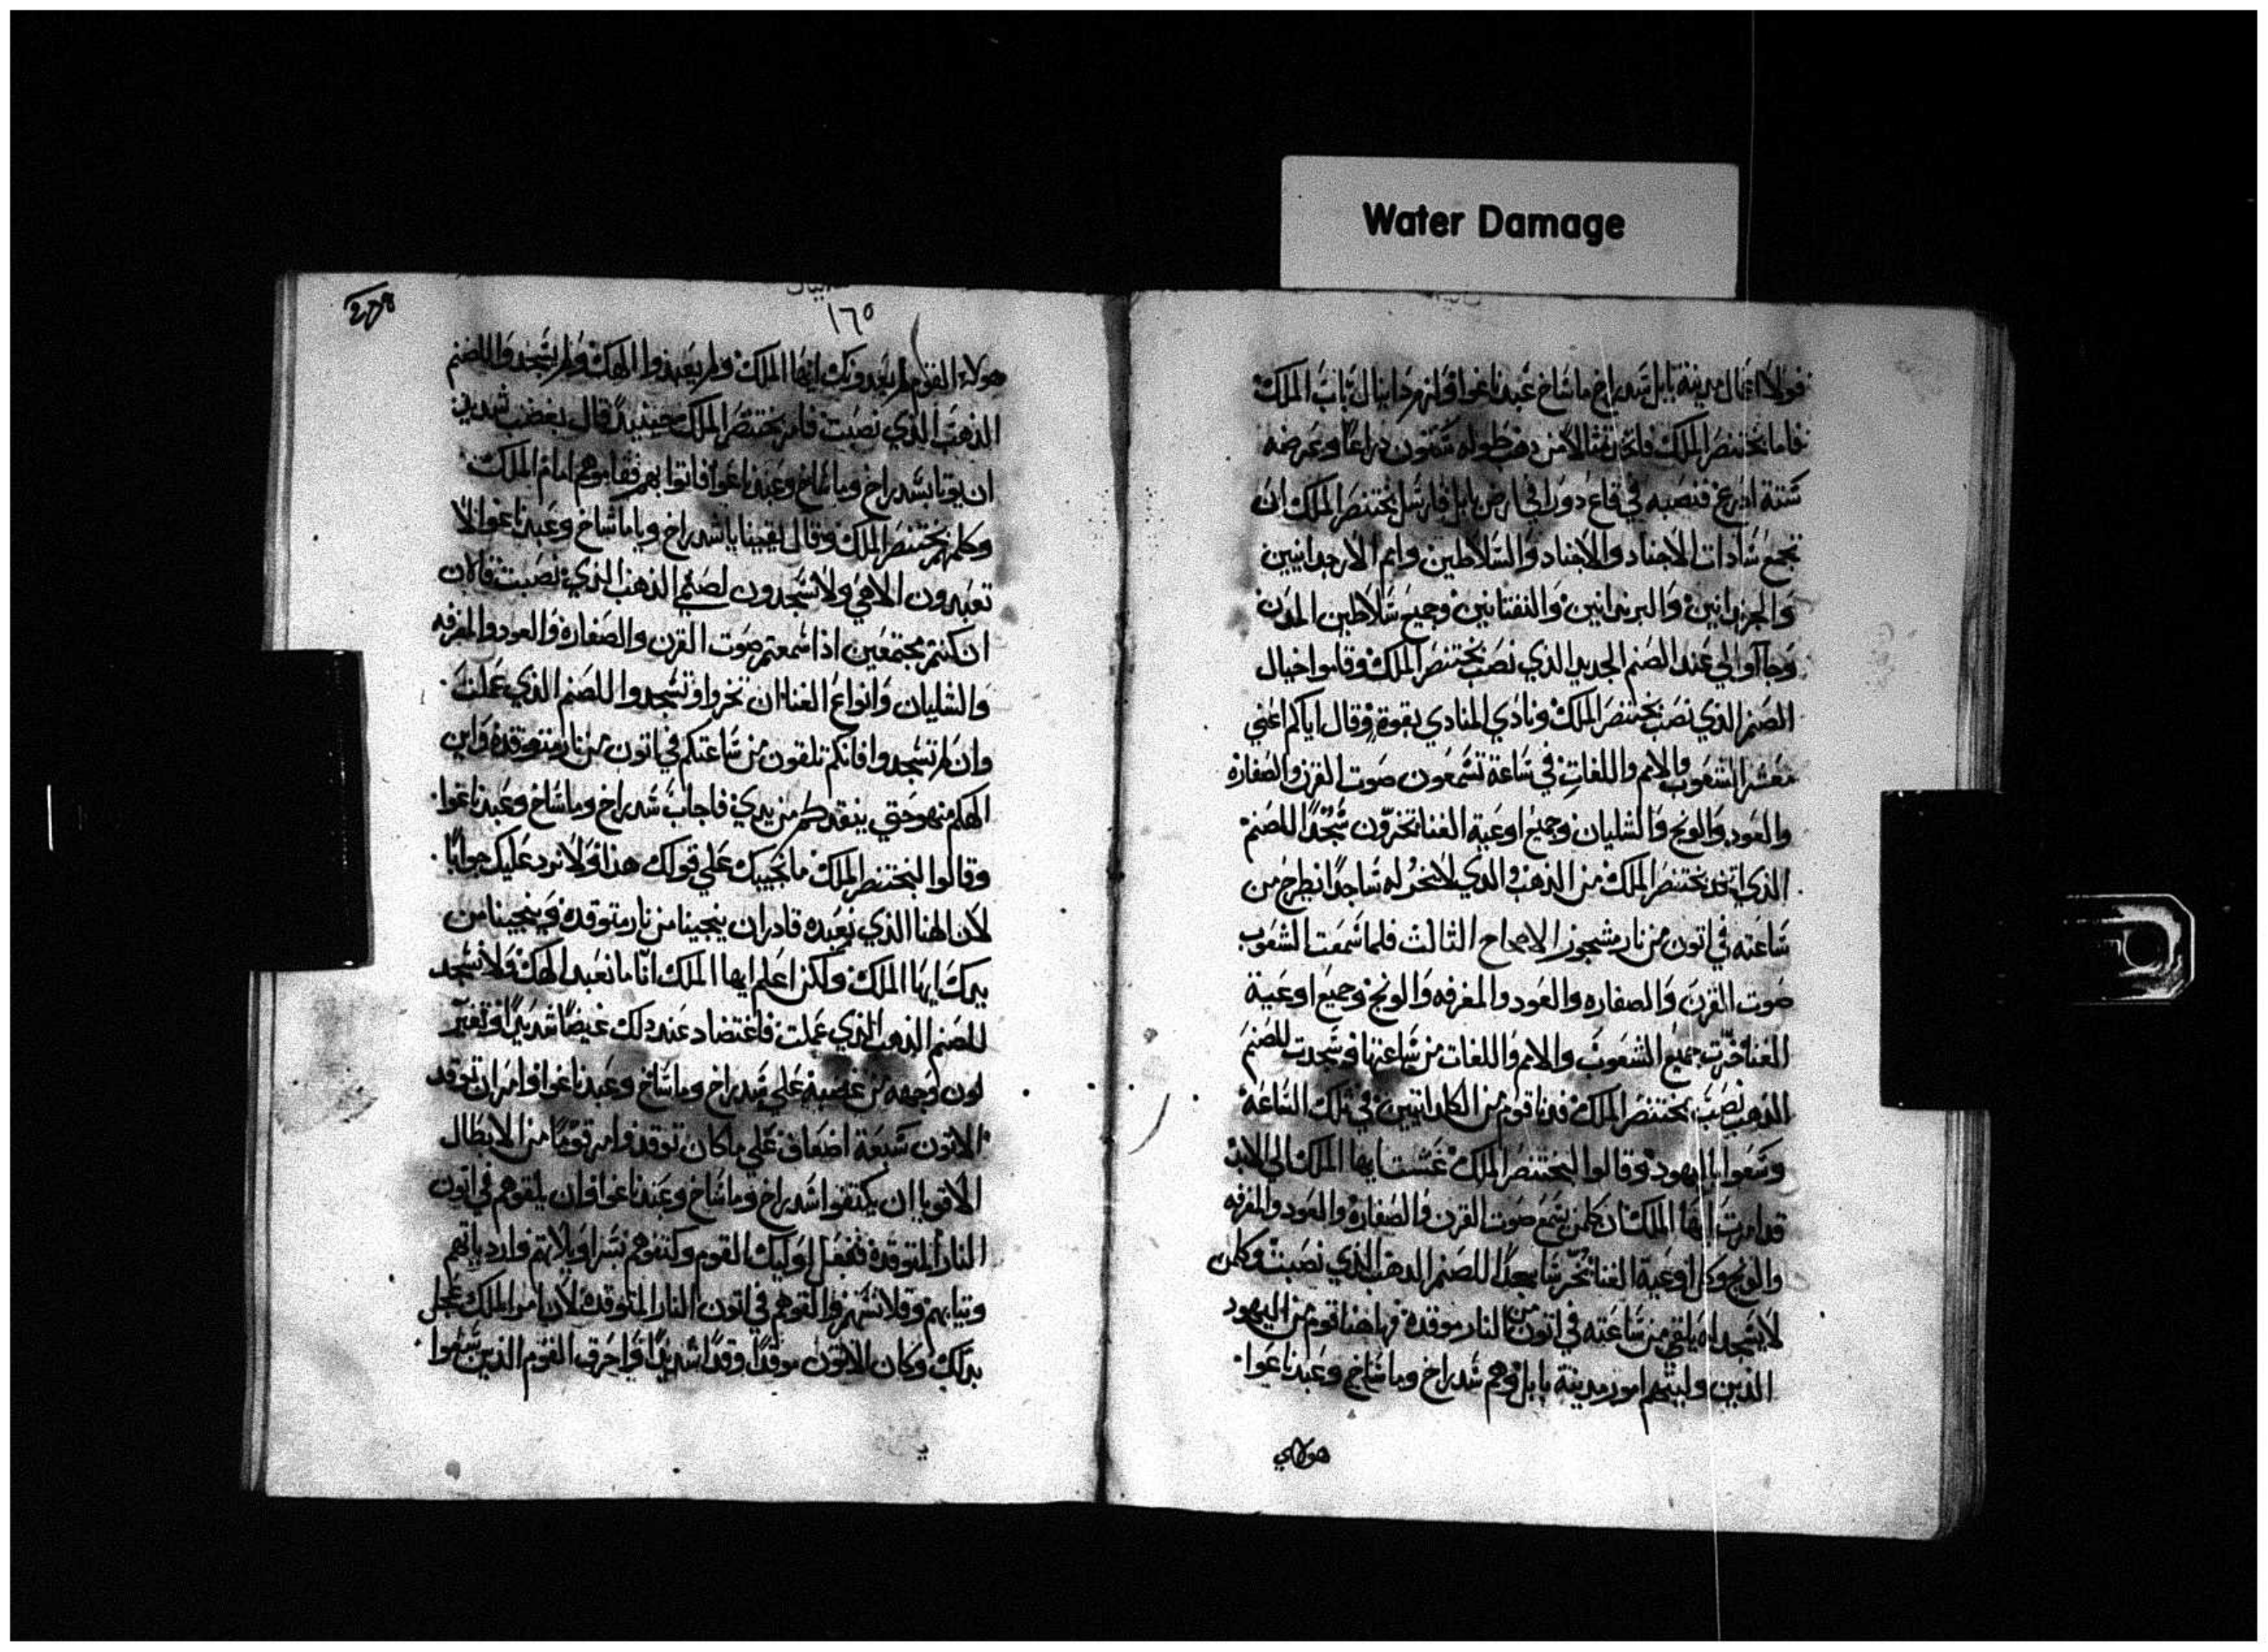 Water Damage
فولا اعمال مدينة بابل شدراخ ماشاخ عبدناغوا ولزم دانيال باب الملك
فاما بختنصر الملك فاتخذ تمثالا من ذهب طوله ستون دراعا وعرضه
ستة ادرع فنصبه في قاع دورا في ارض بابل فارسل بختنصر الملك ان
تجمع سادات الاجناد والاجناد والسلاطين وامم الارجدانيين
والجزبرانيين والبربدانيين والتفتانيين وجميع سلاطين المدن
وجاآوا لي عند الصنم الجديد الذي نصب بختنصر الملك وقاموا حيال
الصنم الذي نصب بختنصر الملك ونادي المنادي بقوة وقال اياكم اعني
معشر الشعوب والامم واللغات في ساعة تسمعون صوت القرن والصفارة
والعود والونج والشليان وجميع اوعية الغنا تخرون سجدا للصنم
الذي بختنصر الملك من الذهب والذي لا يخر له ساجدا يطرح من
ساعته في اتون من نار مشجور الاصحاح الثالث فلما سمعت الشعوب
صوت القرن والصفاره والعود والمغرفه والونج وجميع اوعية
الغنا خرت جميع الشعوب والامم واللغات من ساعتها وسجدت للصنم
الذهب نصب بختنصر الملك فدنا قوم من الكلدانيين في تلك الساعة
وسعوا باليهود وقالوا لبختنصر الملك عشت ايها الملك الي الابد
قد امرت ايها الملك ان كلمن يسمع صوت القرن والصفارة والعود والمغرفه
والونج وكل اوعية الغنا يخر للصنم الذهب الذي نصبت وكلمن
لا يسجد له يلقي من ساعته في اتون من النار موقدة فهاهنا قوم من اليهود
الذين وليتهم امور مدينة بابل وهم شدراخ وماشاخ وعبدناغوا
هولاي
278
١٦٥
هولاء القوم لم يعبدونك ايها الملك ولم يعبدوا الهك ولم يسجدوا للصنم
الذهب الذي نصبت فامر بختنصر الملك حينيد قال بغضب شديد
ان يوتا بشدراخ وماشاخ وعبدناغوا فاتوا بهم فقاموهم امام الملك
وكلمهم بختنصر الملك وقال يقينا يا شدراخ ويا ماشاخ وعبدناغوا لا
تعبدون الاهي ولا تسجدون لصنم الذهب الذي نصبت فالان
ان كنتم مجتمعين اذا سمعتم صوت القرن والصفارة والعود والمغرفه
والشليان وانواع الغنا ان تخروا وتسجدوا للصنم الذي عملت
وان لم تسجدوا فانكم تلقون من ساعتكم في اتون من نار متوقدة واين
الهكم من هو حتي ينقدكم من يدي فاجاب شدراخ وماشاخ وعبدناغوا
وقالوا لبختنصر الملك ما نجيبك علي قولك هذا ولا نرد عليك جوابا
لان الهنا الذي نعبده قادر ان ينجينا من نار متوقدة وينجينا من
يدك ايها الملك ولكن اعلم ايها الملك انا ما نعبد الهك ولا نسجد
للصنم الذهب الذي عملت فاغتضا دعند دلك غيضا شديدا وتغير
لون وجهه من غضبه علي شدراخ وماشاخ وعبدناغوا وامر ان توقد
الاتون سبعة اضعاف علي ما كان توقد وامر قوما من الابطال
الاقويا ان يكتفوا شدراخ وماشاخ وعبدناغوا وان يلقوهم في اتون
النار المتوقدة ففعل اوليك القوم وكتفوهم بسراويلاتهم وارديتهم
وتيابهم وقلانسهم والقوهم في اتون النار المتوقدة لان امر الملك عجل
بدلك وكان الاتون موقدا وقدا شديدا واحرق القوم الذين سعوا